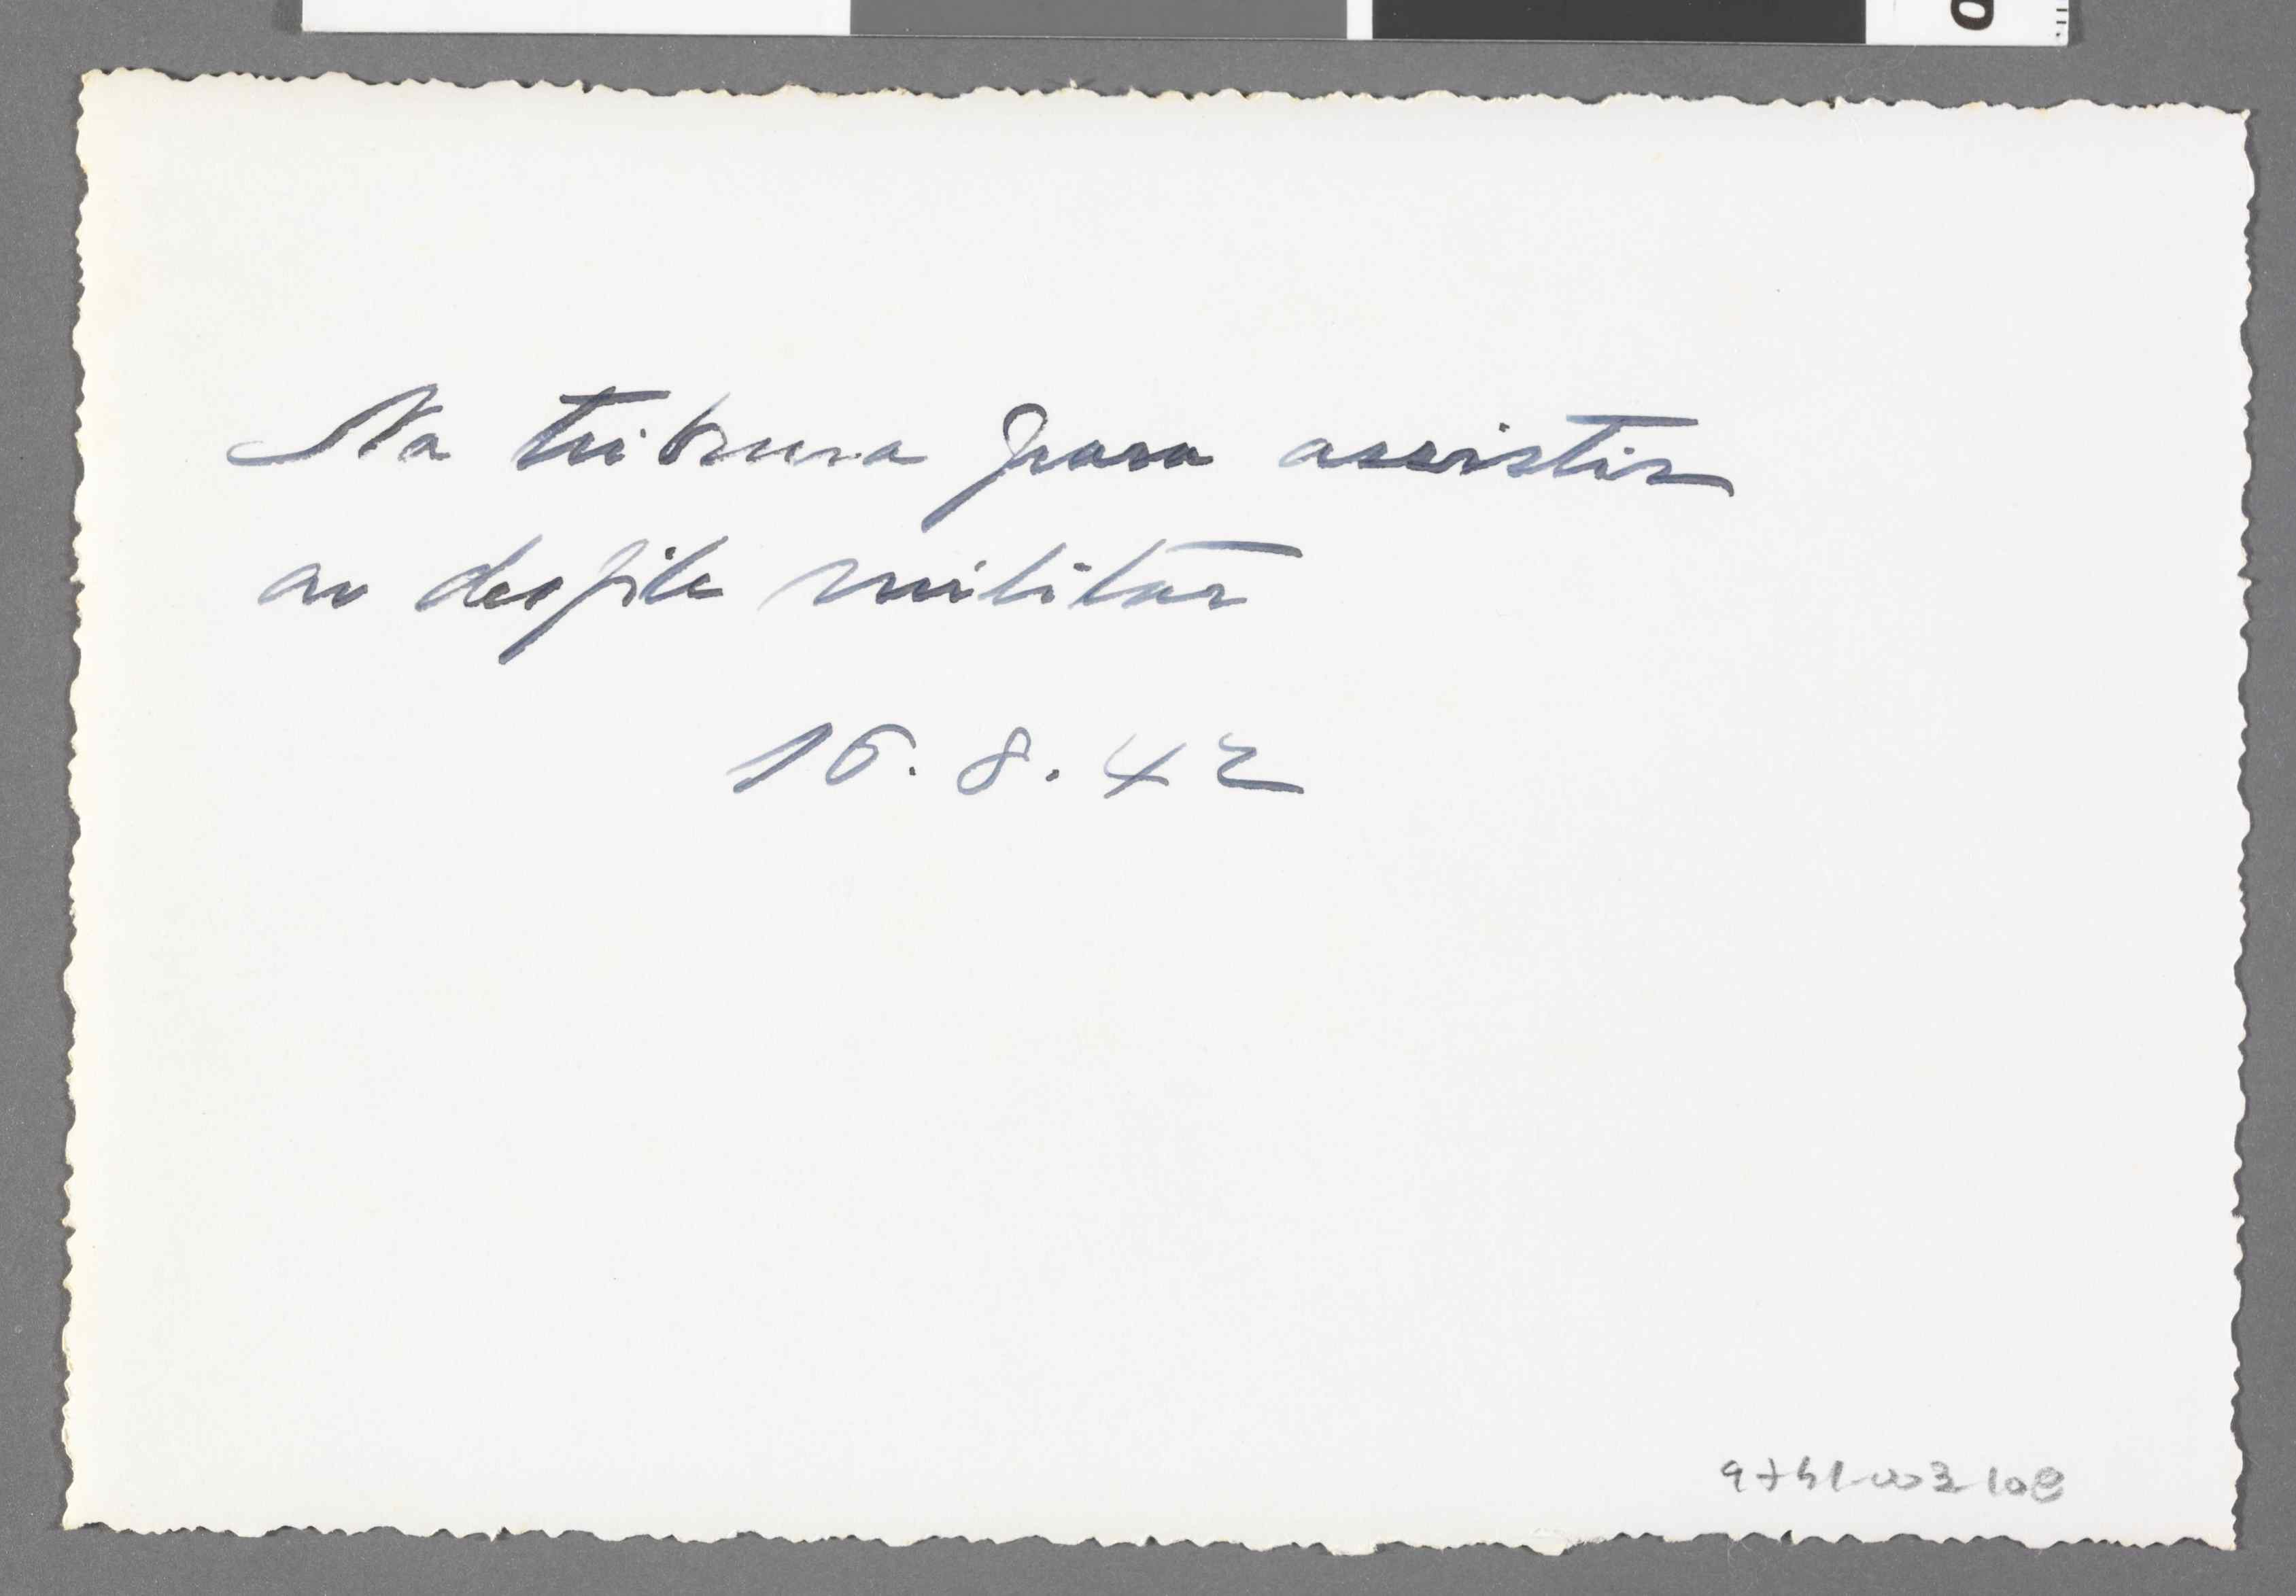 Na tribuna para assistir
ao desfile militar
16.8.42